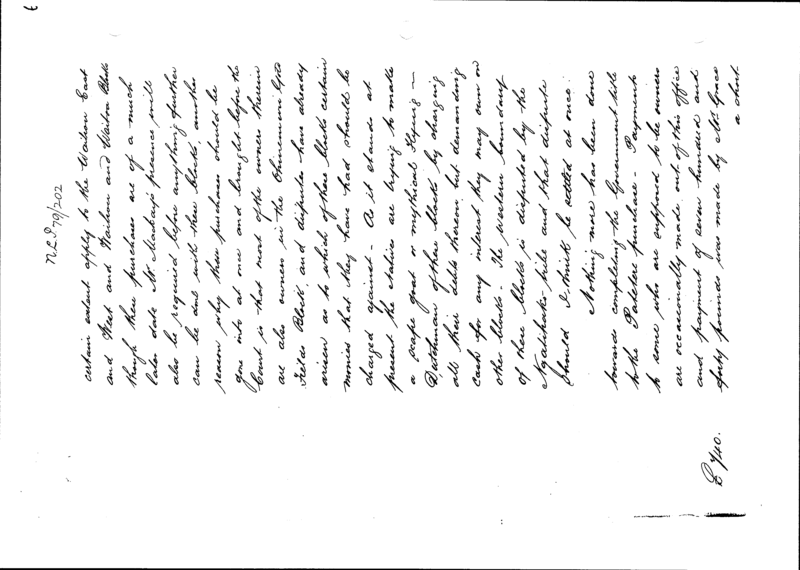 N.L.P. 79/202
certain extent apply to the Waihou East
and West and Wairou and Waitoa Blocks
though these purchases are of a much
later date Mr Mackay's presence will
also be required before anything further
can be done with these blocks, another
reason why these purchases should be
gone into at once and brought before the
Court is that most of the owners therein
are also owners in the Ohinemuri Gold
Fields Block, and disputes have already
arisen as to which of these blocks certain
monies that they have had should be
charged against - As it stands at
present the natives are trying to make
a scape goat or mythical Flying -
Dutchman of these blocks by charging
all their debts thereon but demanding
cash for any interest they may own on
other blocks - The western boundary
of these blocks is disputed by the
Ngatihako tribe and that dispute
should I think be settled at once.
Nothing more has been done
towards completing the Government title
to the Patetere purchase - Payments
to some who are supposed to be owners
are occasionally made out of this office
and payment of seven hundred and
forty pounds was made by Mr Grace
£740.